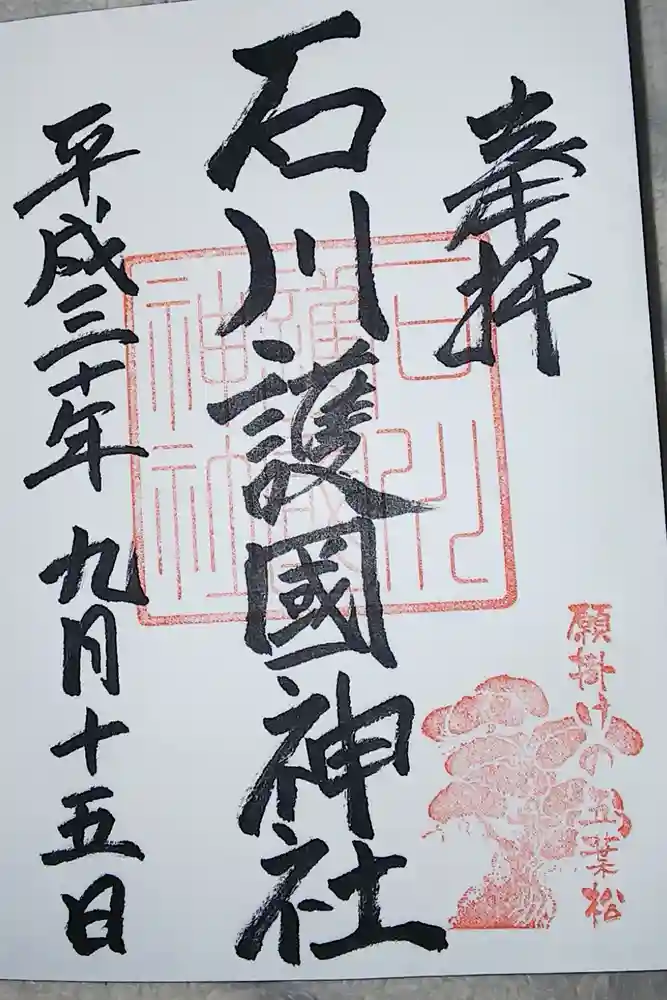 奉拝
石川護國神社
平成三十年九月十五日
石川護國神社
願掛けの五葉松